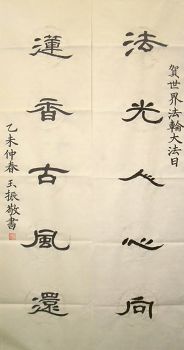 賀世界法輪大法日
法光人心向
蓮香古風還
乙未仲春玉振敬書